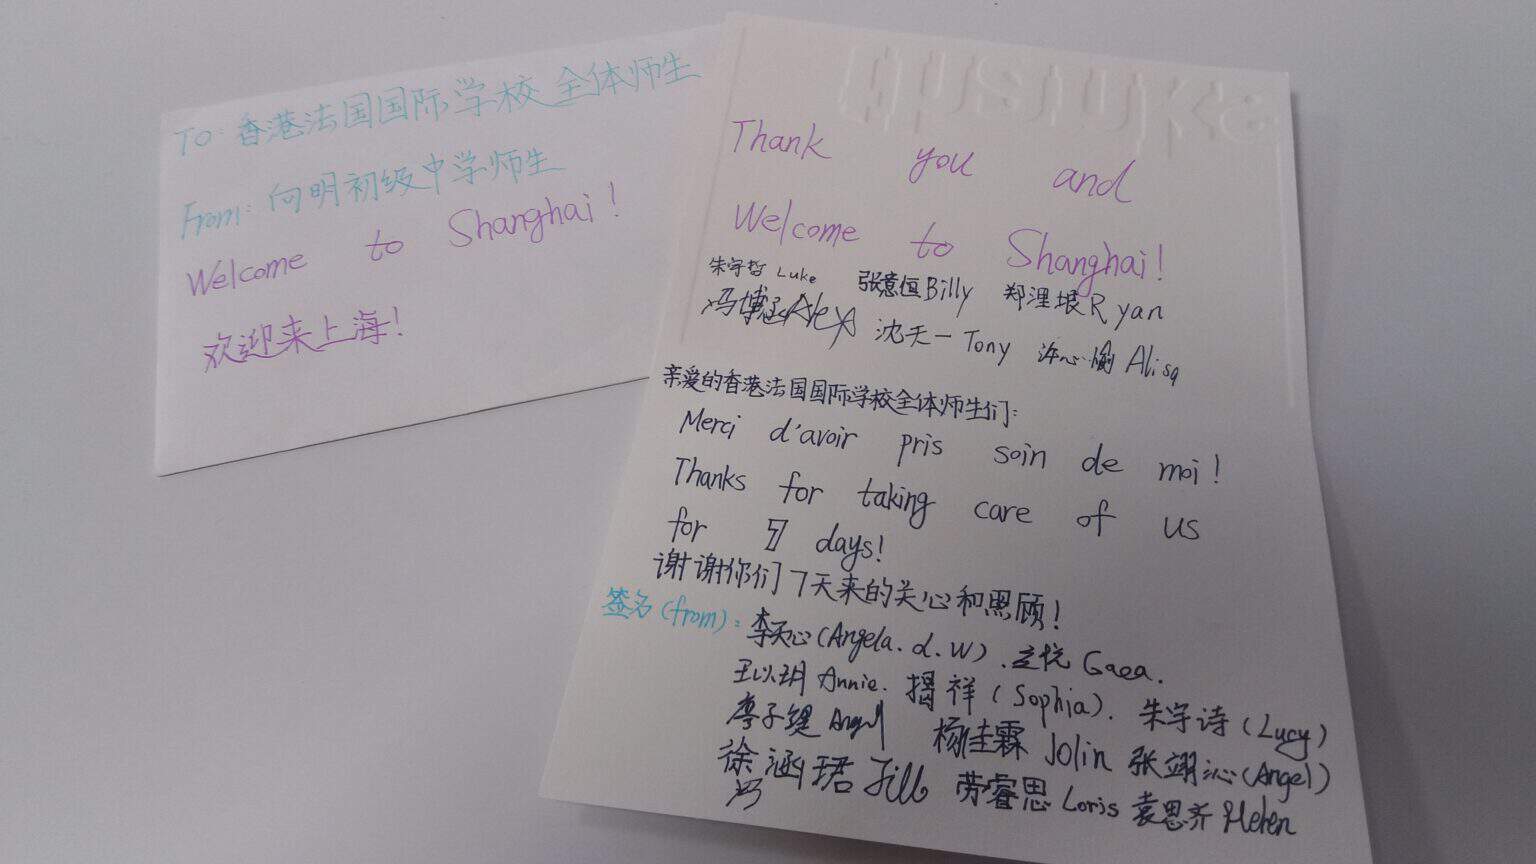 TO: 香港法国国际学校全体师生
From: 向明初级中学师生
Welcome to Shanghai!
欢迎来上海!
Thank you and
Welcome to Shanghai!
朱宇哲 Luke 张意恒 Billy 郑浬垠 Ryan
冯博涵 Alex 沈天一 Tony 许心愉 Alisa
亲爱的香港法国国际学校全体师生们:
Merci d'avoir pris soin de moi!
Thanks for taking care of us
for 7 days!
谢谢你们7天来的关心和照顾!
签名(from): 李天心(Angela.d.W). Gaea.
王以玥 Annie. 揭祥(Sophia). 朱宇诗(Lucy)
廖子缇 Angel 杨佳霖 Jolin 张翊沁(Angel)
徐涵珺 Jill 劳睿思 Loris 袁思齐 Helen